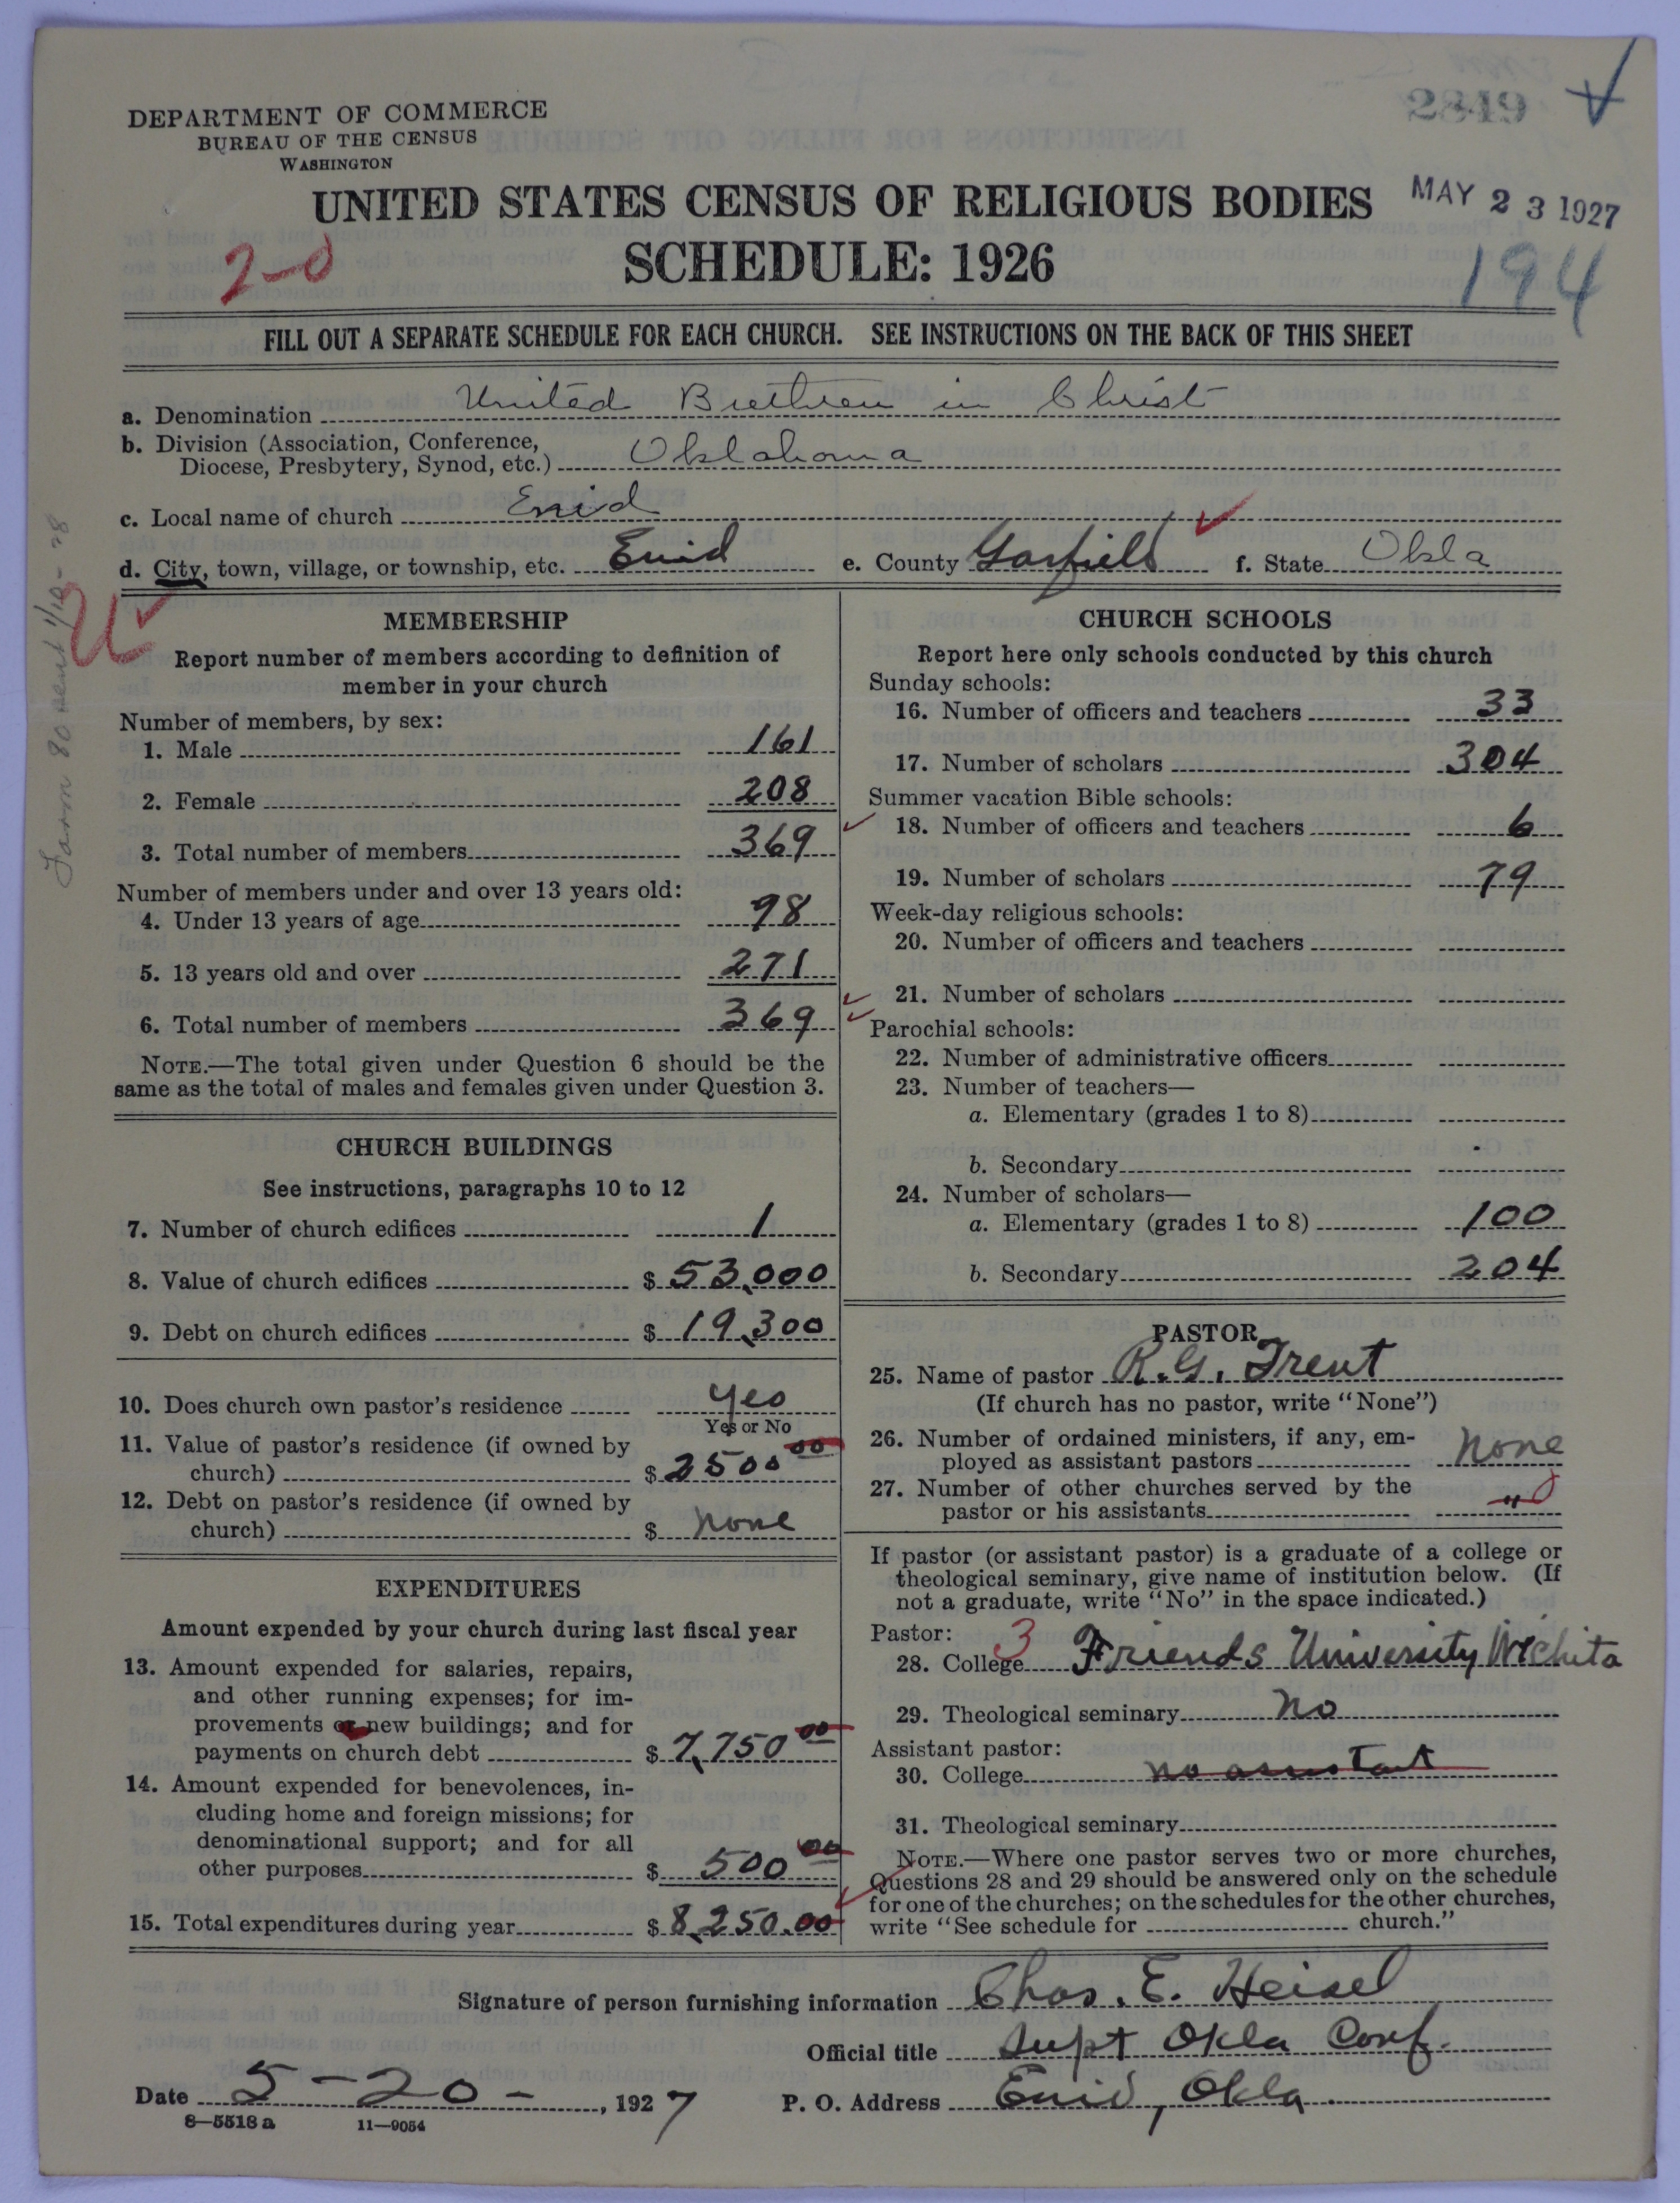 DEPARTMENT OF COMMERCE
BUREAU OF THE CENSUS
WASHINGTON
2849
UNITED STATES CENSUS OF RELIGIOUS BODIES
MAY 23 1927
SCHEDULE: 1926
2-0
194
FILL OUT A SEPARATE SCHEDULE FOR EACH CHURCH. SEE INSTRUCTIONS ON THE BACK OF THIS SHEET
a. Denomination United Brethren in Christ
b. Division (Association, Conference,
Diocese, Presbytery, Synod, etc.) Oklahoma
c. Local name of church Enid
d. City, town, village, or township, etc. Enid e. County Garfield f. State Okla
U
Form 80 sent 1/10-28
MEMBERSHIP
Report number of members according to definition of
member in your church
Number of members, by sex:
1. Male 161
2. Female 208
3. Total number of members 369
Number of members under and over 13 years old:
4. Under 13 years of age 98
5. 13 years old and over 271
6. Total number of members 369
NOTE.—The total given under Question 6 should be the
same as the total of males and females given under Question 3.
CHURCH BUILDINGS
See instructions, paragraphs 10 to 12
7. Number of church edifices 1
8. Value of church edifices $ 53,000
9. Debt on church edifices $ 19,300
10. Does church own pastor's residence yes
Yes or No
11. Value of pastor's residence (if owned by
church) $ 2500 00
12. Debt on pastor's residence (if owned by
church) $ none
EXPENDITURES
Amount expended by your church during last fiscal year
13. Amount expended for salaries, repairs,
and other running expenses; for im-
provements or new buildings; and for
payments on church debt $ 7,750 00
14. Amount expended for benevolences, in-
cluding home and foreign missions; for
denominational support; and for all
other purposes $ 500 00
15. Total expenditures during year $ 8,250.00
CHURCH SCHOOLS
Report here only schools conducted by this church
Sunday schools:
16. Number of officers and teachers 33
17. Number of scholars 304
Summer vacation Bible schools:
18. Number of officers and teachers 6
19. Number of scholars 79
Week-day religious schools:
20. Number of officers and teachers
21. Number of scholars
Parochial schools:
22. Number of administrative officers
23. Number of teachers—
a. Elementary (grades 1 to 8)
b. Secondary
24. Number of scholars—
a. Elementary (grades 1 to 8) 100
b. Secondary 204
PASTOR
25. Name of pastor R.G. Trent
(If church has no pastor, write "None")
26. Number of ordained ministers, if any, em-
ployed as assistant pastors none
27. Number of other churches served by the
pastor or his assistants " 0
If pastor (or assistant pastor) is a graduate of a college or
theological seminary, give name of institution below. (If
not a graduate, write "No" in the space indicated.)
Pastor: 3
28. College Friends University Wichita
29. Theological seminary No
Assistant pastor:
30. College no assistant
31. Theological seminary
NOTE.—Where one pastor serves two or more churches,
Questions 28 and 29 should be answered only on the schedule
for one of the churches; on the schedules for the other churches,
write "See schedule for church."
Signature of person furnishing information Chas. E. Heisel
Official title Supt Okla Conf.
Date 5-20-, 1927 P. O. Address Enid, Okla.
8-5518 a 11-9054